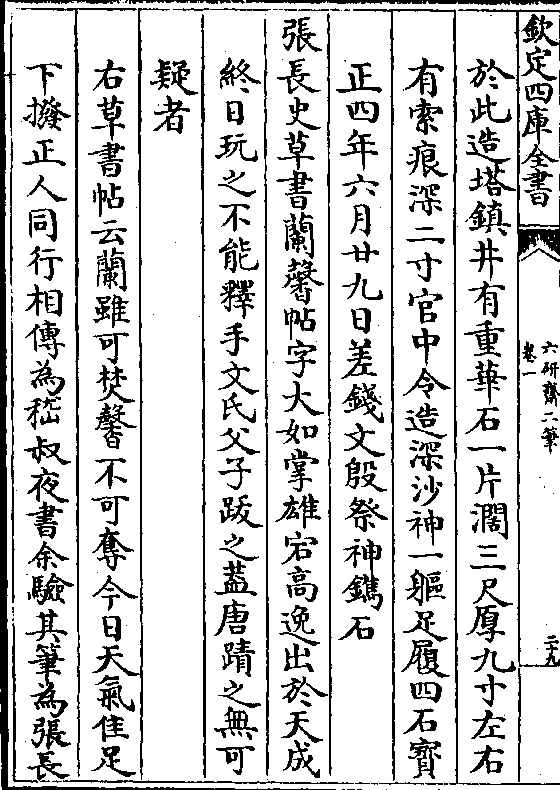 欽定四庫全書
六研齋二筆
卷一
二十九
於此造塔鎮井有重華石一片濶三尺厚九寸左右
有索痕深二寸官中令造深沙神一軀足履四石寶
正四年六月廿九日差錢文殷祭神鐫石
張長史草書蘭馨帖字大如掌雄宕高逸出於天成
終日玩之不能釋手文氏父子跋之蓋唐蹟之無可
疑者
右草書帖云蘭雖可焚馨不可奪今日天氣佳足
下撥正人同行相傳為嵇叔夜書余驗其筆為張長